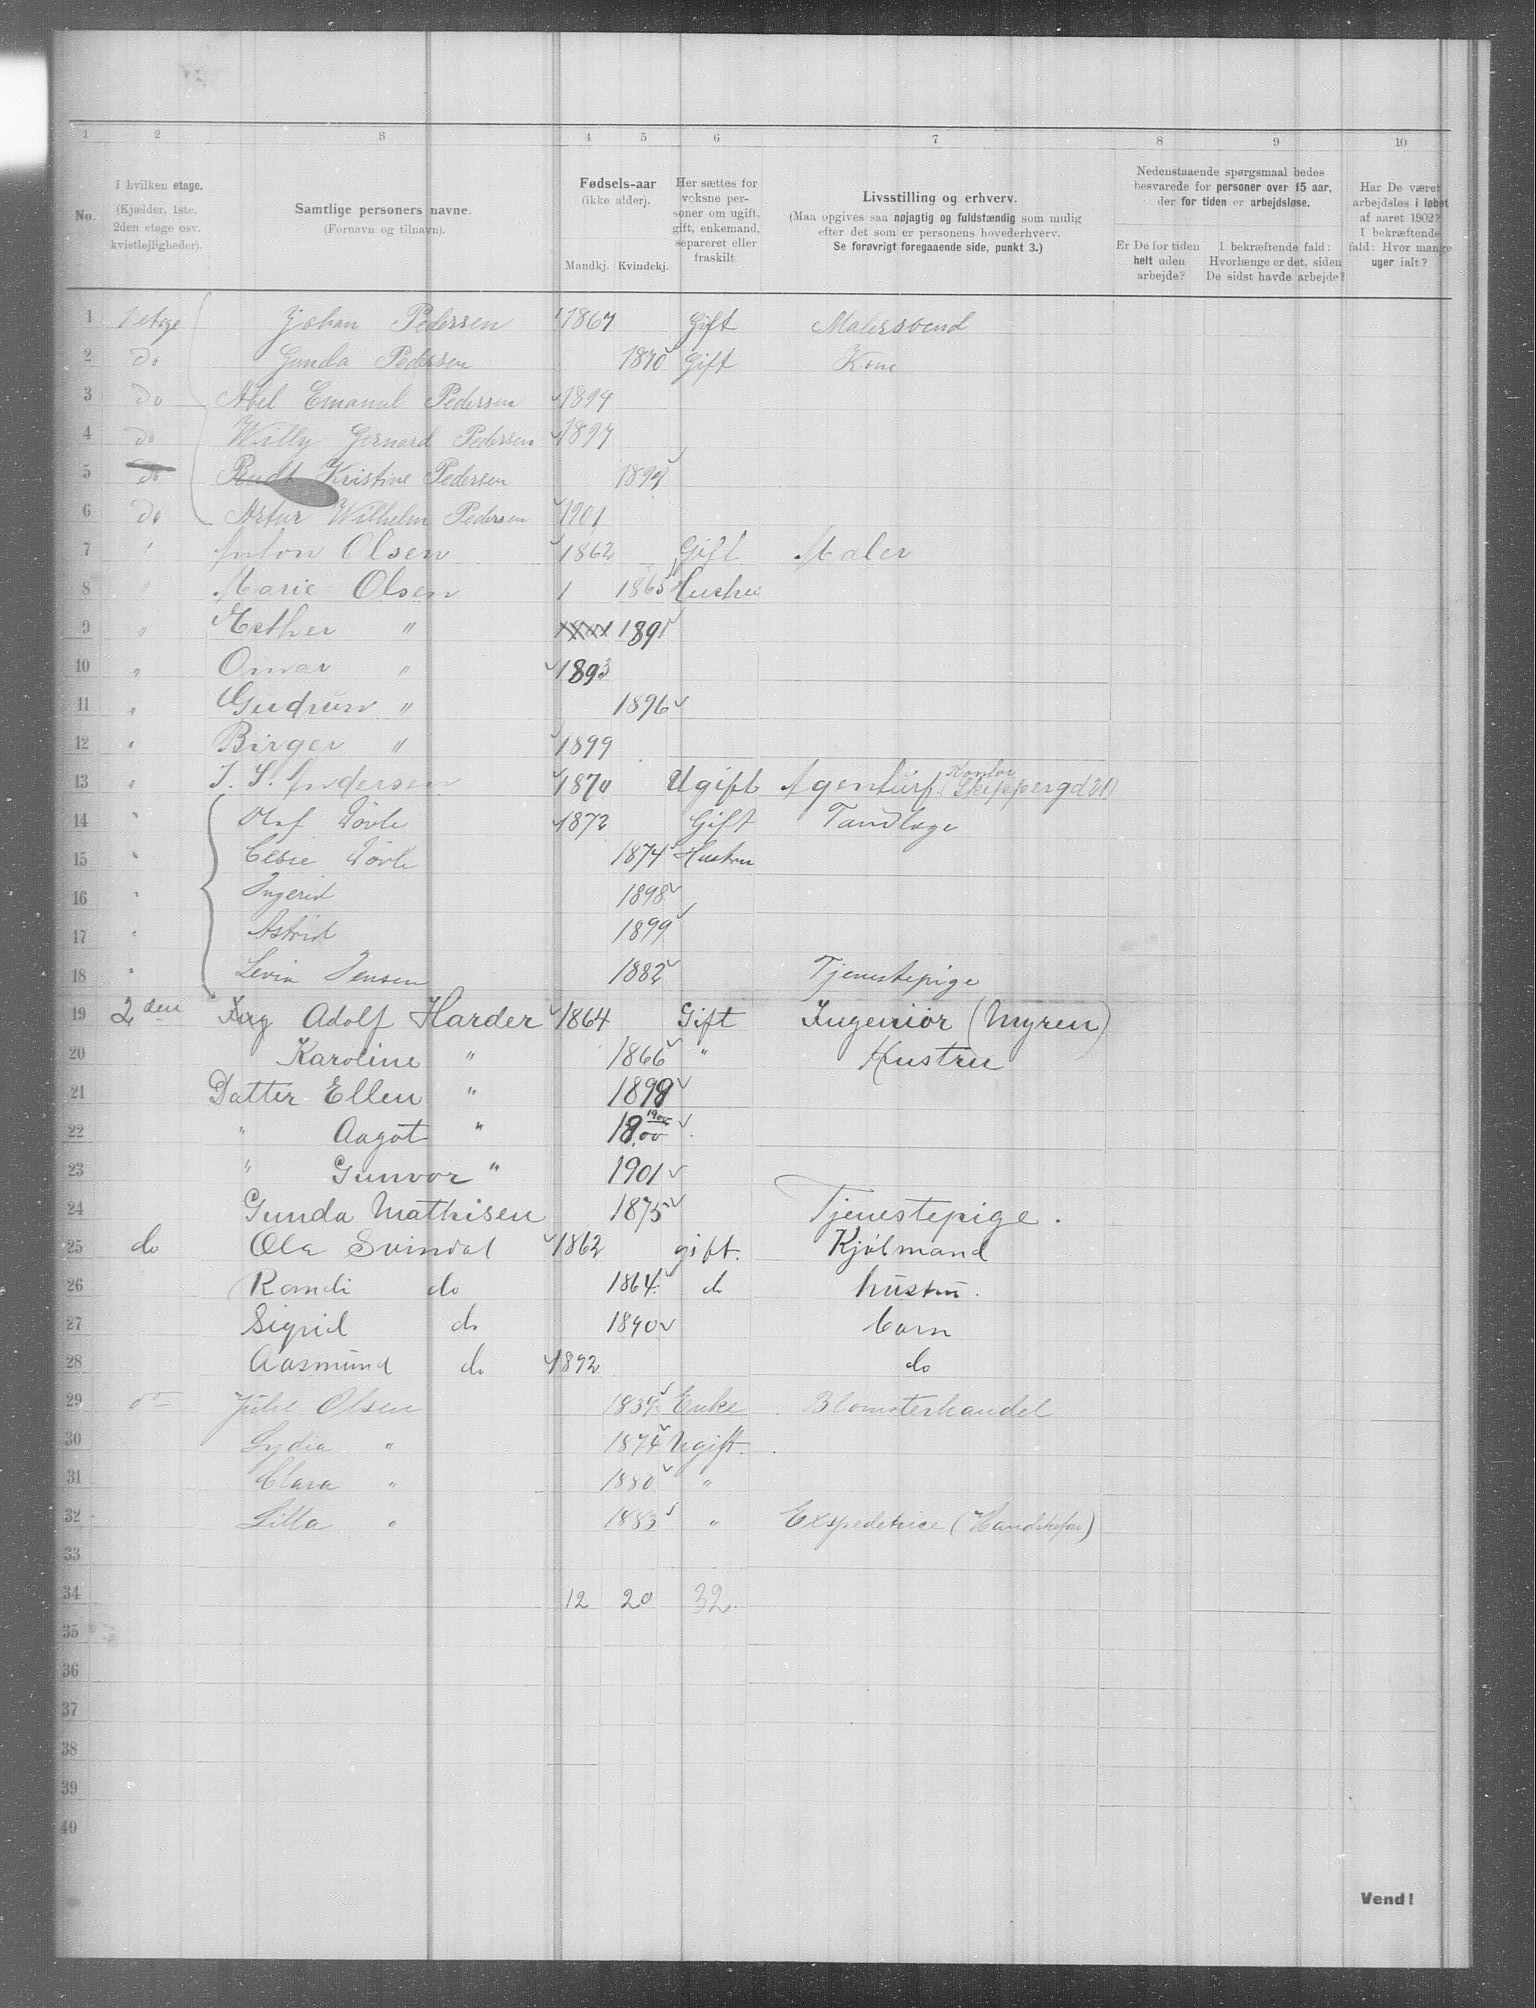 1 2 3 4 5 6 7 8 9 10
No.
I hvilken etage.
(Kjælder, 1ste.
2den etage osv.
kvistlejligheder).
Samtlige personers navne.
(Fornavn og tilnavn).
Fødsels-aar
(ikke alder).
Mandkj. Kvindekj.
Her sættes for
voksne per-
soner om ugift,
gift, enkemand,
separeret eller
fraskilt.
Livsstilling og erhverv.
(Maa opgives saa nøjagtig og fuldstændig som mulig
efter det som er personens hovederhverv.
Se forøvrigt foregaaende side, punkt 3.)
Nedenstaaende spørgsmaal bedes
besvarede for personer over 15 aar,
der for tiden er arbejdsløse.
Er De for tiden
helt uden
arbejde?
I bekræftende fald:
Hvorlænge er det, siden
De sidst havde arbejde?
Har De været
arbejdsløs i løbet
af aaret 1902?
I bekræftende
fald: Hvor mange
uger ialt?
1 1 etage Johan Pedersen 1867 Gift Malersvend
2 do Gunda Pedersen 1870 Gift Kone
3 do Abel Emanuel Pedersen 1894
4 do Willy Gernard Pedersen 1897
5 do Kristine Pedersen 1899
6 do Artur Wilhelm Pedersen 1901
7 " Anton Olsen 1862 Gift Maler
8 " Marie Olsen 1865 Hustru
9 " Esther " 1891
10 " Omar " 1893
11 " Gudrun " 1896
12 " Birger " 1899
13 " J. S. Andersen 1870 Ugift Agentur (Kontor Skippergd 21)
14 " Olaf 1872 Gift Tandlæge
15 " 1874 Hustru
16 " Ingerid 1898
17 " Astrid 1899
18 " Jensen 1882 Tjenestepige
19 2den Adolf Harder 1864 Gift Ingeniør (Myren)
20 Karoline " 1866 " Hustru
21 Datter Ellen " 1898
22 " Aagot " 1900
23 " Gunvor " 1901
24 Gunda Mathisen 1875 Tjenestepige.
25 do Ola Svindal 1862 gift. Kjølmand
26 Randi do 1864. do hustru.
27 Sigrid do 1890 barn
28 Aasmund do 1892 do
29 do Julie Olsen 1839 Enke Blomsterhandel
30 Lydia " 1874 Ugift.
31 Clara " 1880 "
32 Lilla " 1883 " Expeditrice
33
34 12 20 32.
35
36
37
38
39
40
Vend!